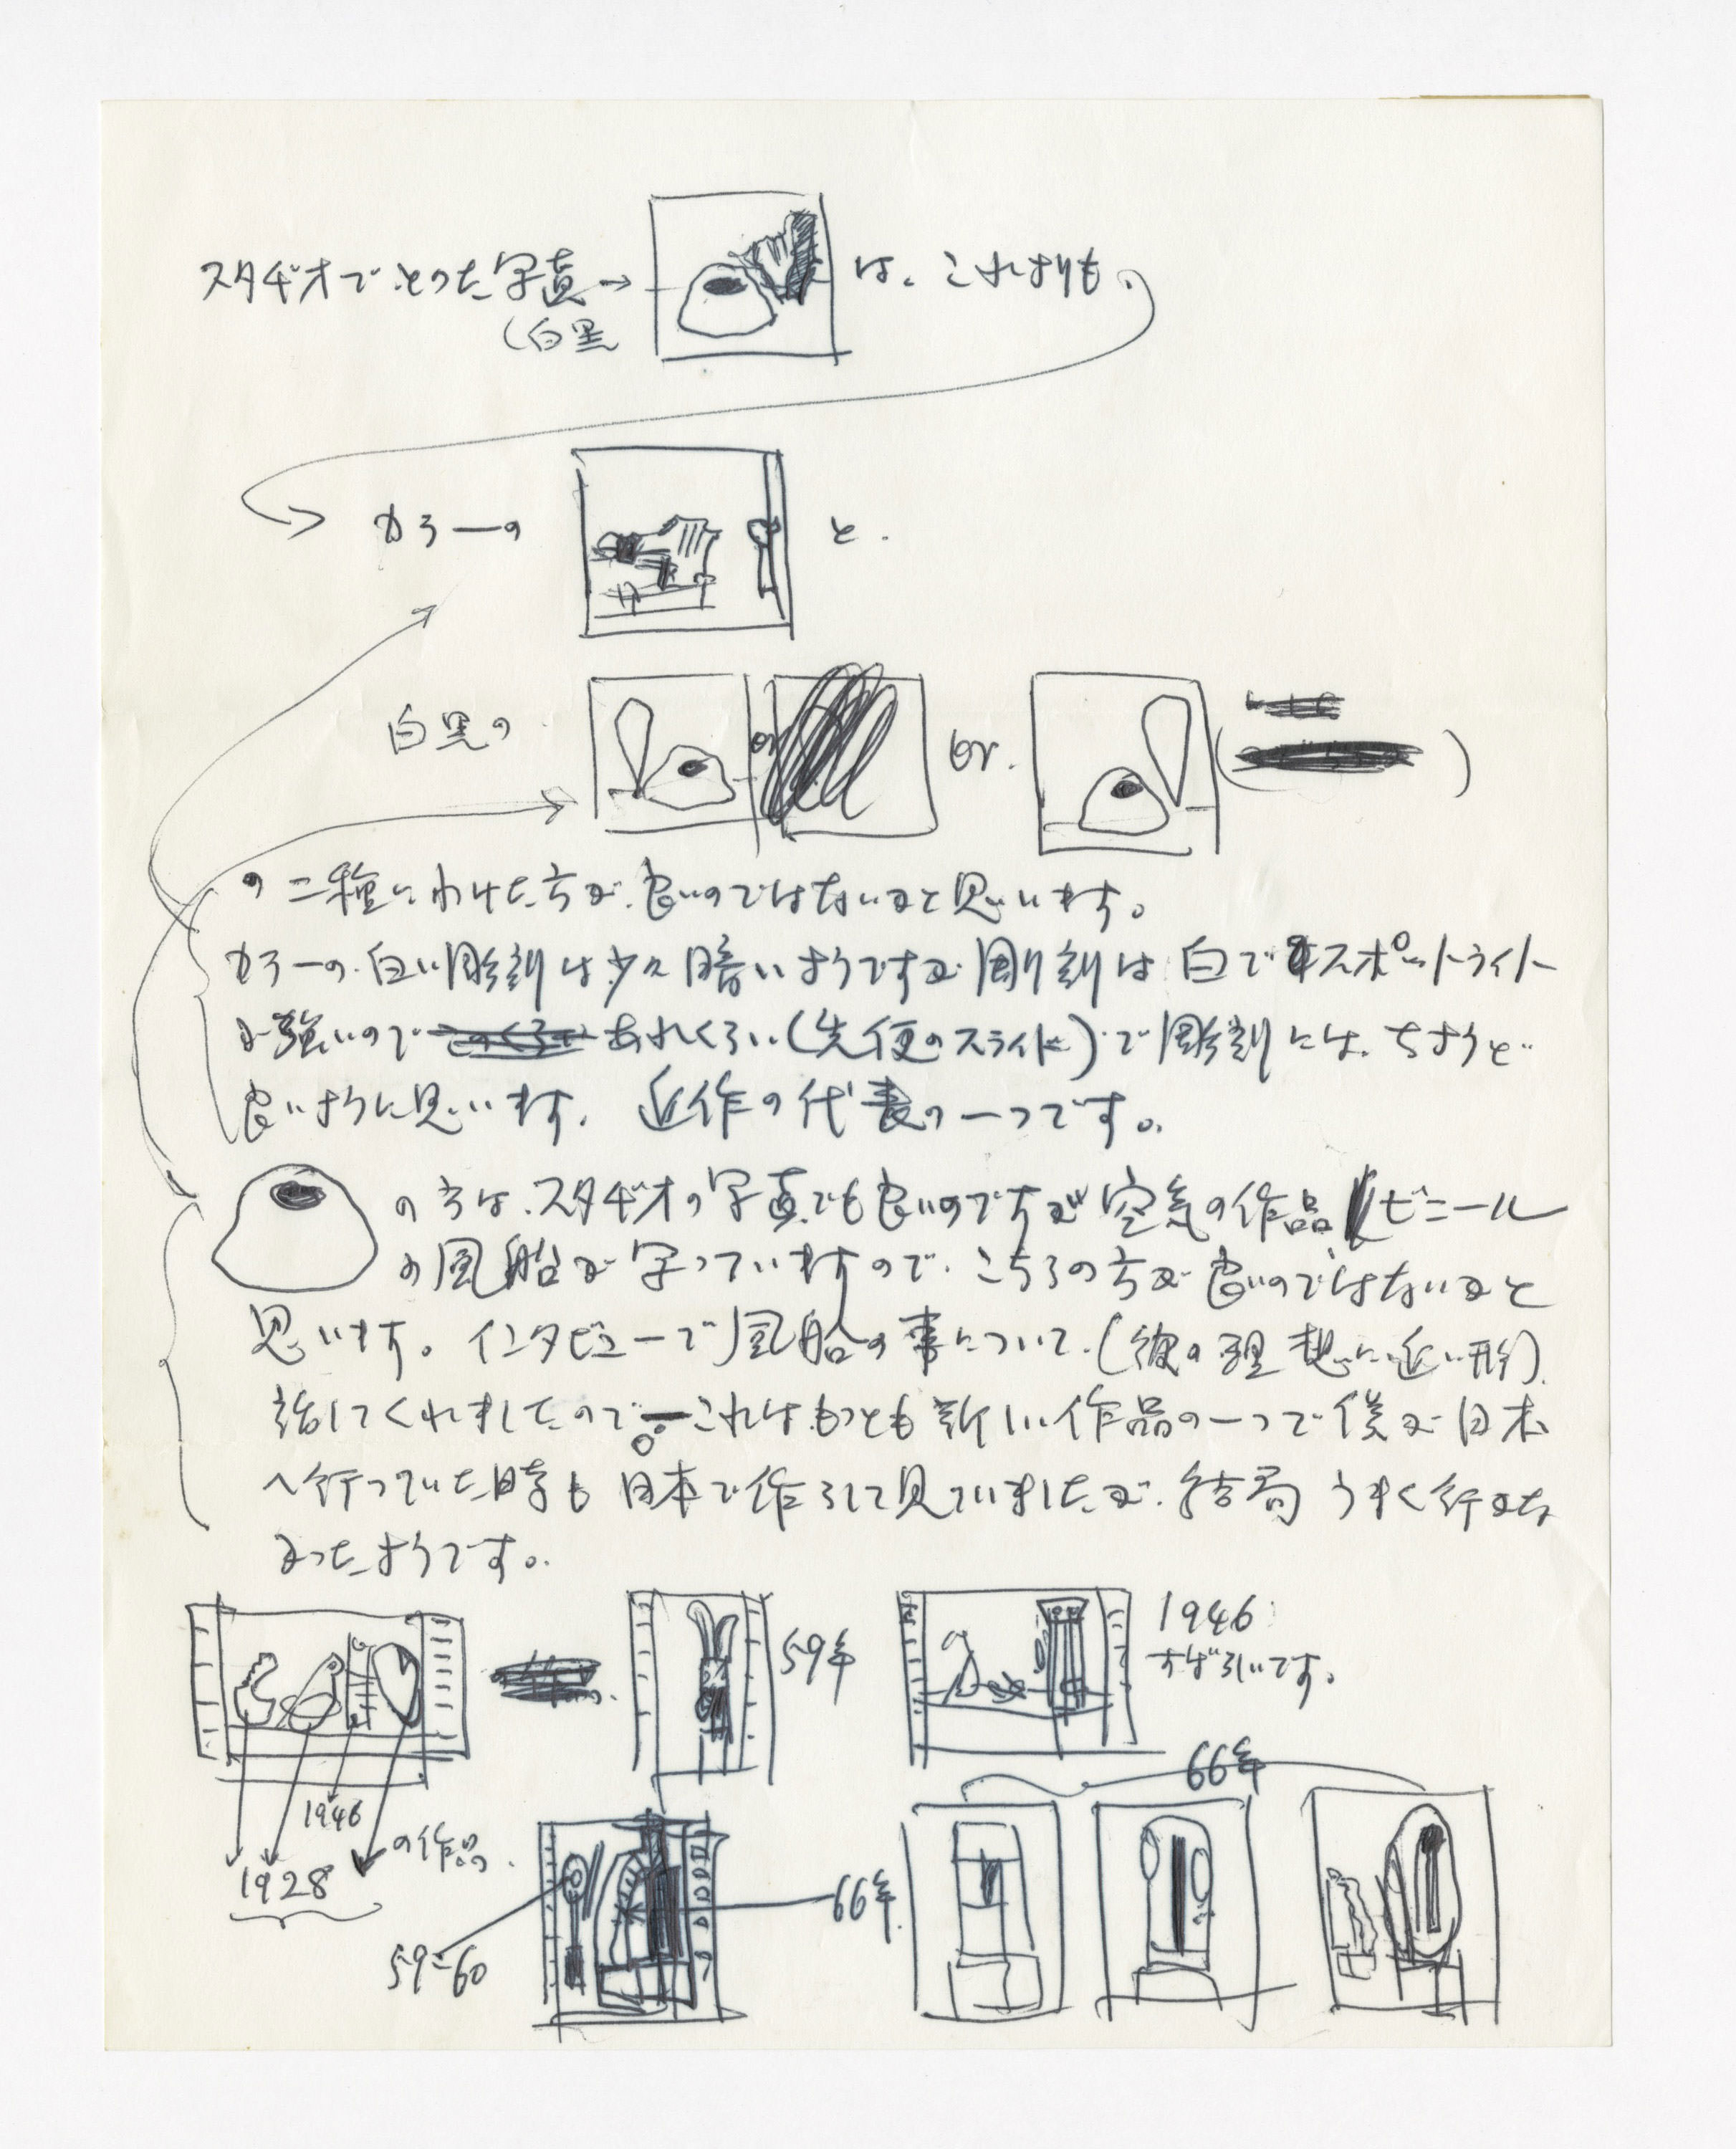 スタヂオでとった写真→ は、これよりも、
(白黒
カラーの と.
白黒の or or.
の二種にわけた方が良いのではないかと思います。
カラーの白い彫刻は少々暗いようですが彫刻は白でスポットライト
が強いので あれくらい(先便のスライド)で彫刻には、ちょうど
良いように思います. 近作の代表の一つです。
の方は、スタヂオの写真でも良いのですが空気の作品 ビニール
の風船が写っていますので、こちらの方が良いのではないかと
思います。インタビューで風船の事について.(彼の理想に近い形)
話してくれましたので。これはもっとも新しい作品の一つで僕が日本
へ行っていた時も日本で作らして見ていましたが、結局うまく行かな
かったようです。
59年
1946
すば引いです。
66年
1946
の作品.
1928
59-60
66年.